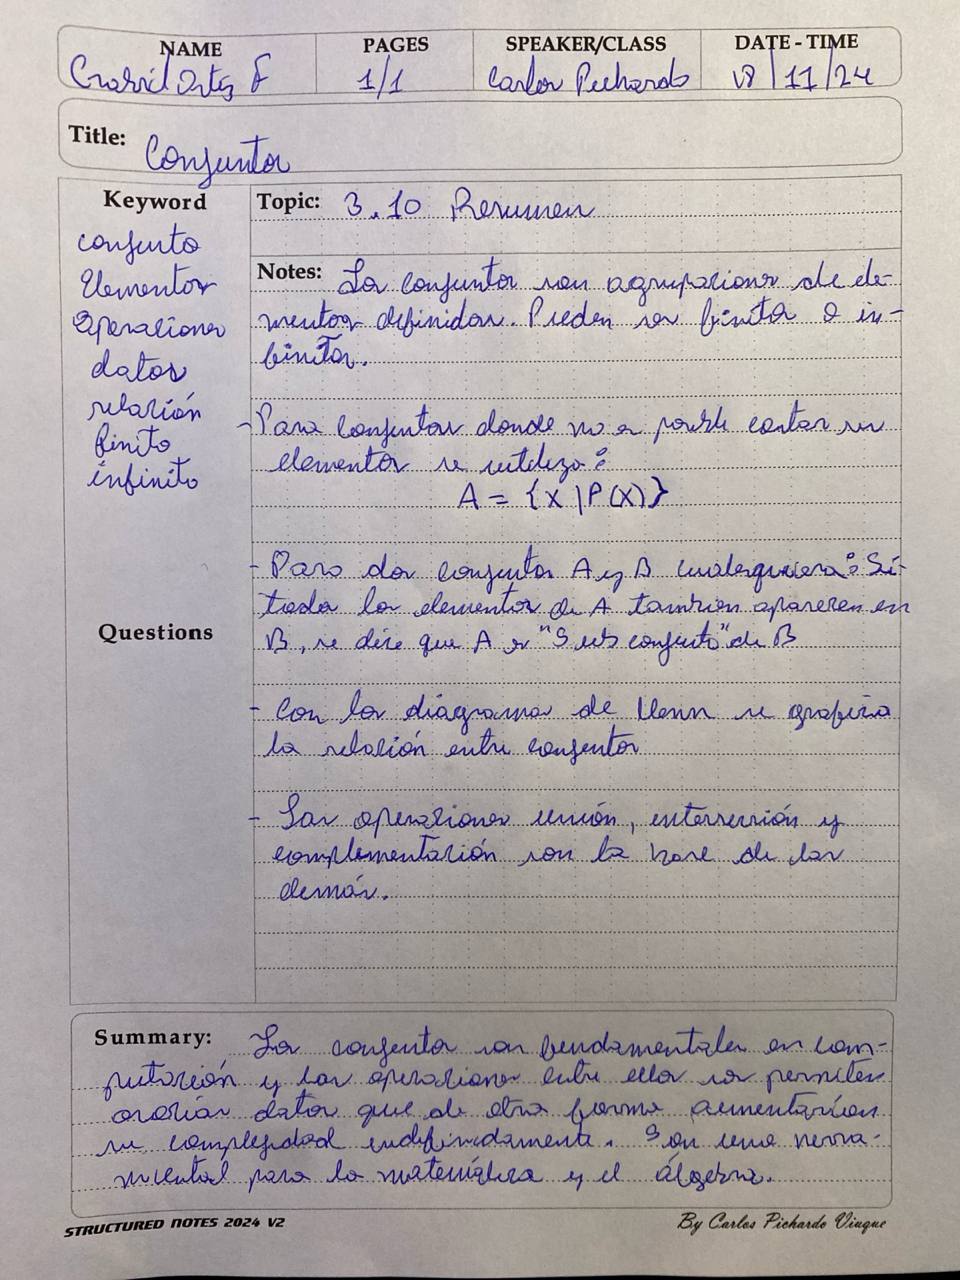 NAME PAGES SPEAKER/CLASS DATE - TIME
1/1 Carlos Pichardo 18/11/24
Title: Conjuntos
Keyword
conjunto
Elementos
Operaciones
datos
relación
finito
infinito
Questions
Topic: 3.10 Resumen
Notes: Los conjuntos son agrupaciones de ele-
mentos definidos. Pueden ser finitos o in-
finitos.
- Para conjuntos donde no es posible contar sus
elementos se utiliza:
A = {x | P(x)}
- Para dos conjuntos A y B cualesquiera: Si
todos los elementos de A tambien aparecen en
B, se dice que A es "Subconjunto" de B
- Con los diagramas de Venn se grafica
la relación entre conjuntos
- Las operaciones unión, intersección y
complementación son la base de las
demás.
Summary: Los conjuntos son fundamentales en com-
putación y las operaciones entre ellos permiten
asociar datos que de otra forma aumentarían
su complejidad indefinidamente. Son una herra-
mienta para la matemática y el álgebra.
STRUCTURED NOTES 2024 V2
By Carlos Pichardo Viuque